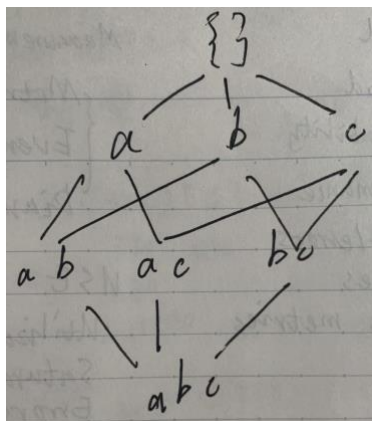 { }
a b c
ab ac bc
abc